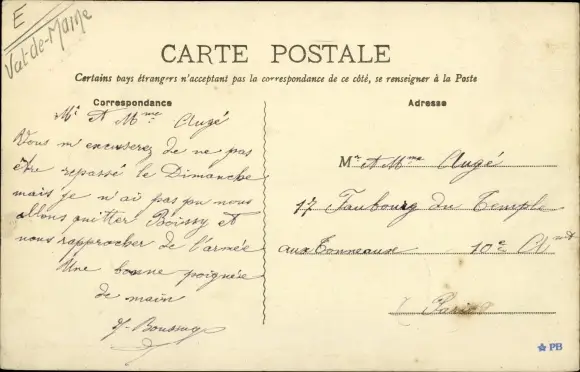 E
Val-de-Marne
CARTE POSTALE
Certains pays étrangers n'acceptant pas la correspondance de ce côté, se renseigner à la Poste
Correspondance
Mr et Mme Augé
Vous m'excuserez de ne pas
être repassé le Dimanche
mais je n'ai pas pu nous
allons quitter Boissy et
nous rapprocher de l'armée
Une bonne poignée
de main
Adresse
Mr et Mme Augé
17 Faubourg du Temple
aux Tonneaux 10e
Paris
PB